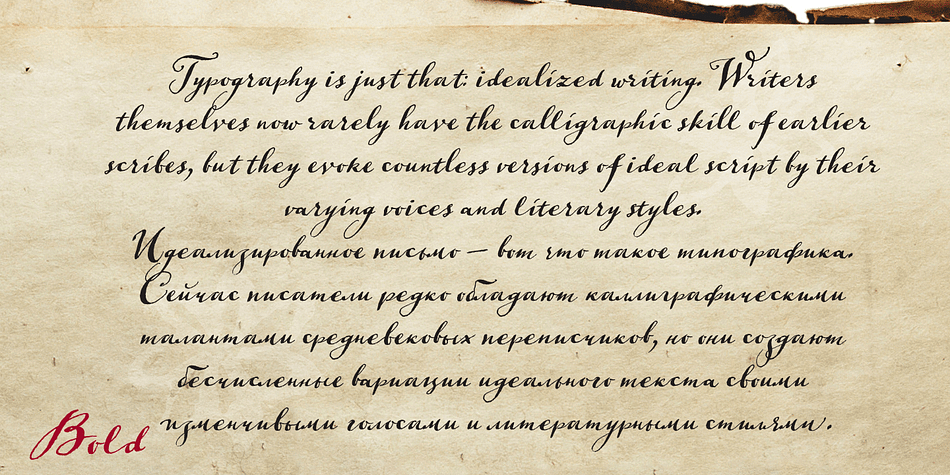 Typography is just that: idealized writing. Writers
themselves now rarely have the calligraphic skill of earlier
scribes, but they evoke countless versions of ideal script by their
varying voices and literary styles.
Идеализированное письмо — вот что такое типографика.
Сейчас писатели редко обладают каллиграфическими
талантами средневековых переписчиков, но они создают
бесчисленные вариации идеального текста своими
изменчивыми голосами и литературными стилями.
Bold